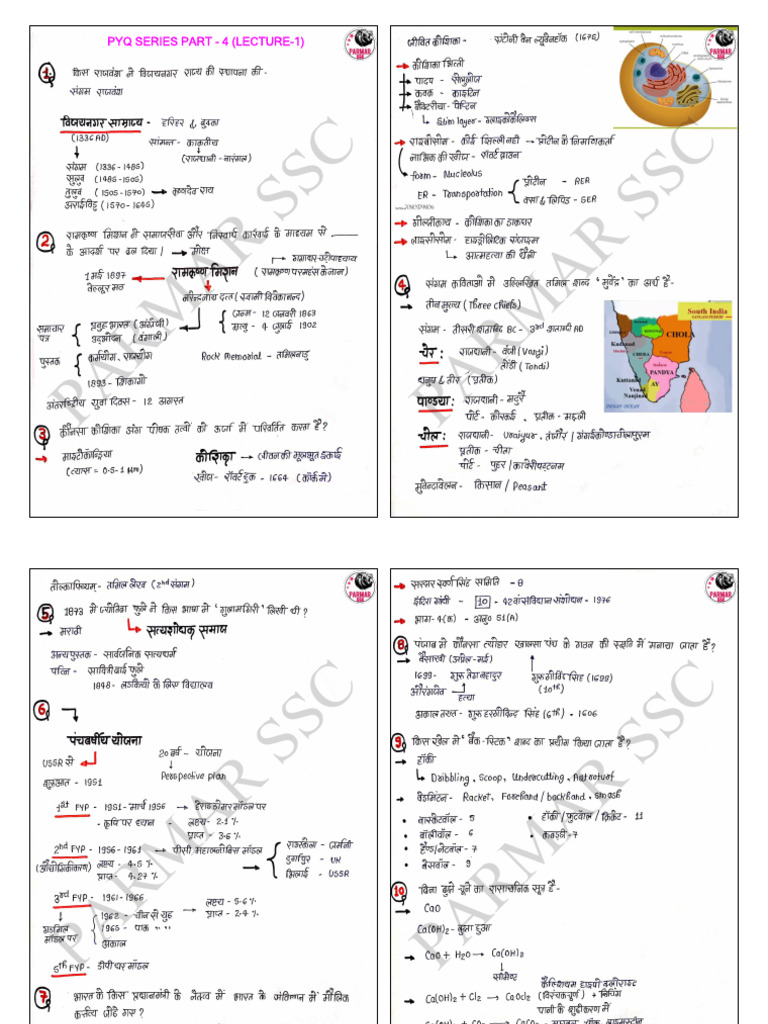 PYQ SERIES PART - 4 (LECTURE-1)
PARMAR SSC
1. किस राजवंश ने विजयनगर राज्य की स्थापना की-
संगम राजवंश
विजयनगर साम्राज्य - हरिहर & बुक्का
(1336 AD)
सामन्त - काकतीय
(राजधानी - वारंगल)
संगम (1336-1485)
सुलुव (1485-1505)
तुलुव (1505-1570) → कृष्णदेव राय
अराविडु (1570-1646)
2. रामकृष्ण मिशन ही समाजसेवा और निस्वार्थ कार्रवाई के माध्यम से
के आदर्श पर बल दिया। → मोक्ष
गदाधर चट्टोपाध्याय
1 मई 1897 ← रामकृष्ण मिशन (रामकृष्ण परमहंस के नाम)
वेल्लूर मठ
नरेन्द्रनाथ दत्त (स्वामी विवेकानन्द)
जन्म - 12 जनवरी 1863
मृत्यु - 4 जुलाई 1902
समाचार पत्र
प्रबुद्ध भारत (अंग्रेजी)
उद्बोधन (बंगाली)
पुस्तक
कर्मयोग, राजयोग
Rock Memorial - तमिलनाडु
1893 - शिकागो
अंतर्राष्ट्रीय युवा दिवस - 12 अगस्त
3. कौनसा कोशिका अंग पोषक तत्वों को ऊर्जा में परिवर्तित करता है?
→ माइटोकॉन्ड्रिया
(व्यास = 0.5-1 μm)
कोशिका → जीवन की मूलभूत इकाई
खोज - रॉबर्ट हुक - 1664 (कॉर्क में)
PARMAR SSC
जीवित कोशिका - एंटोनी वॉन ल्यूवेनहॉक (1674)
→ कोशिका भित्ति
→ पादप - सेलुलोज
→ कवक - काइटिन
→ बैक्टीरिया - पेप्टिन
Slim layer - ग्लाइकोकैलिक्स
→ राइबोसोम - कोई झिल्ली नही → प्रोटीन के निर्माणकर्ता
नाभिक की खोज - रॉबर्ट ब्राउन
form - Nucleolus
ER - Transportation
प्रोटीन - RER
वसा & लिपिड - SER
→ गॉल्जीकाय - कोशिका का डाकघर
→ लाइसोसोम - हाइड्रोलिटिक एंजाइम
आत्महत्या की थैली
4. संगम कविताओं में उल्लिखित तमिल शब्द 'मुवेंद्र' का अर्थ है-
→ तीन मुख्य (Three Chiefs)
संगम - तीसरी शताब्दी BC - 3rd शताब्दी AD
चेर : राजधानी - वंजी (Vanji)
तोंडी (Tondi)
धनुष & तीर (प्रतीक)
पाण्डया : राजधानी - मदुरै
पोर्ट - कोरकई, प्रतीक - मछली
चोल : राजधानी - Uraiyur, तंजौर / गंगईकोण्डाचोलपुरम
प्रतीक - चीता
पोर्ट - पुहार / कावेरीपट्टनम
मुवेन्दावेलन - किसान / Peasant
South India
CHOLA
CHERA
PANDYA
AY
Kuttanad
Venad
Nanjinad
INDIAN OCEAN
PARMAR SSC
तोल्काप्पियम् - तमिल ग्रंथ (2nd संगम)
5. 1873 में ज्योतिबा फुले ने किस भाषा में "गुलामगिरी" लिखी थी?
→ मराठी
सत्यशोधक समाज
अन्य पुस्तक - सार्वजनिक सत्यधर्म
पत्नि - सावित्रीबाई फुले
1848 - लड़कियो के लिए विद्यालय
6.
पंचवर्षीय योजना
USSR से
20 वर्ष - योजना
शुरुआत - 1951
Perspective plan
1st FYP - 1951-मार्च 1956 → हैराल्ड डोमर मॉडल पर
- कृषि पर ध्यान - लक्ष्य - 2.1 %
प्राप्त - 3.6 %
2nd FYP - 1956-1961 → पीसी महालनोबिस मॉडल
(औद्योगिकीकरण) लक्ष्य - 4.5 %
प्राप्त - 4.27 %
राउरकेला - जर्मनी
दुर्गापुर - UK
भिलाई - USSR
3rd FYP - 1961-1966
लक्ष्य - 5.6 %
प्राप्त - 2.4 %
गाडगिल मॉडल पर
1962 - चीन से युद्ध
1965 - पाक " "
अकाल
5th FYP - डीपी धर मॉडल
7. भारत के किस प्रधानमंत्री के नेतृत्व में भारत के संविधान में मौलिक
कर्तव्य जोड़े गए?
PARMAR SSC
→ सरदार स्वर्ण सिंह समिति - 8
इंदिरा गांधी - 10 - 42वां संविधान संशोधन - 1976
→ भाग - 4(क) - अनु० 51(A)
8. पंजाब में कौनसा त्योहार खालसा पंथ के गठन की स्मृति में मनाया जाता है?
→ बैसाखी (अप्रैल-मई)
1699 - गुरु तेग बहादुर
गुरु गोविंद सिंह (1699)
(10th)
औरंगजेब
हत्या
अकाल तख्त - गुरु हरगोविन्द सिंह (6th) - 1606
9. किस खेल में "बैक-स्टिक" शब्द का प्रयोग किया जाता है?
→ हॉकी
Dribbling, Scoop, Undercutting, Astroturf
→ बैडमिंटन - Racket, Forehand / backhand, smash
• बास्केटबॉल - 5
• हॉकी / फुटबॉल / क्रिकेट - 11
• वॉलीबॉल - 6
• कबड्डी - 7
• हैण्ड/नेटबॉल - 7
• बेसबॉल - 9
10. बिना बुझे चूने का रासायनिक सूत्र है-
→ CaO
Ca(OH)2 - बुझा हुआ
→ CaO + H2O → Ca(OH)2
कैल्शियम हाइपो क्लोराइट
→ Ca(OH)2 + Cl2 → CaOCl2 (विरंजकचूर्ण) → ब्लिचिंग
पानी के शुद्धीकरण में
PARMAR SSC